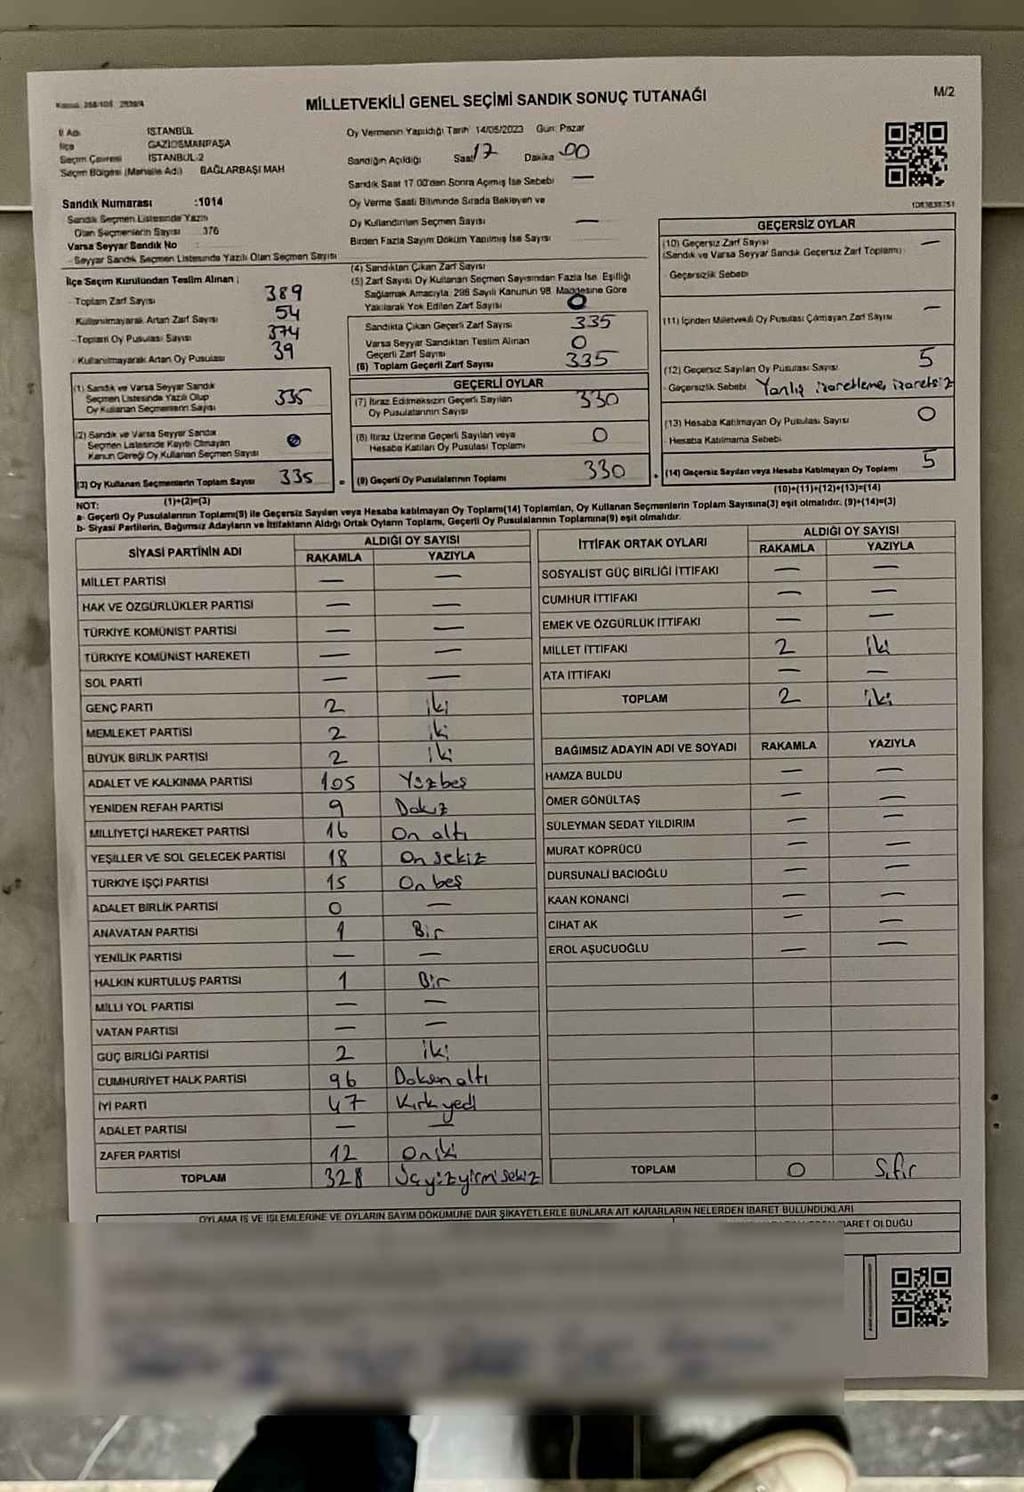 MİLLETVEKİLİ GENEL SEÇİMİ SANDIK SONUÇ TUTANAĞI
M/2
İl Adı İSTANBUL
İlçe GAZİOSMANPAŞA
Seçim Çevresi İSTANBUL-2
Seçim Bölgesi (Mahalle Adı) BAĞLARBAŞI MAH
Sandık Numarası :1014
Sandık Seçmen Listesinde Yazılı
Olan Seçmenlerin Sayısı 376
Varsa Seyyar Sandık No :
- Seyyar Sandık Seçmen Listesinde Yazılı Olan Seçmen Sayısı
Oy Vermenin Yapıldığı Tarih 14/05/2023 Gün: Pazar
Sandığın Açıldığı Saat 17 Dakika 00
Sandık Saat 17.00'den Sonra Açılmış İse Sebebi —
Oy Verme Saati Bitiminde Sırada Bekleyen ve
Oy Kullandırılan Seçmen Sayısı —
Birden Fazla Sayım Döküm Yapılmış İse Sayısı
İlçe Seçim Kurulundan Teslim Alınan ;
- Toplam Zarf Sayısı 389
Kullanılmayarak Artan Zarf Sayısı 54
- Toplam Oy Pusulası Sayısı 374
- Kullanılmayarak Artan Oy Pusulası 39
(1) Sandık ve Varsa Seyyar Sandık
Seçmen Listesinde Yazılı Olup
Oy Kullanan Seçmenlerin Sayısı 335
(2) Sandık ve Varsa Seyyar Sandık
Seçmen Listesinde Kayıtlı Olmayan
Kanun Gereği Oy Kullanan Seçmen Sayısı
(3) Oy Kullanan Seçmenlerin Toplam Sayısı 335
(1)+(2)=(3)
(4) Sandıktan Çıkan Zarf Sayısı
(5) Zarf Sayısı Oy Kullanan Seçmen Sayısından Fazla İse, Eşitliği
Sağlamak Amacıyla, 298 Sayılı Kanunun 98. Maddesine Göre
Yakılarak Yok Edilen Zarf Sayısı 0
Sandıkta Çıkan Geçerli Zarf Sayısı 335
Varsa Seyyar Sandıktan Teslim Alınan
Geçerli Zarf Sayısı 0
(6) Toplam Geçerli Zarf Sayısı 335
GEÇERLİ OYLAR
(7) İtiraz Edilmeksizin Geçerli Sayılan
Oy Pusulalarının Sayısı 330
(8) İtiraz Üzerine Geçerli Sayılan veya
Hesaba Katılan Oy Pusulası Toplamı 0
(9) Geçerli Oy Pusulalarının Toplamı 330
GEÇERSİZ OYLAR
(10) Geçersiz Zarf Sayısı —
(Sandık ve Varsa Seyyar Sandık Geçersiz Zarf Toplamı)
- Geçersizlik Sebebi
(11) İçinden Milletvekili Oy Pusulası Çıkmayan Zarf Sayısı —
(12) Geçersiz Sayılan Oy Pusulası Sayısı 5
- Geçersizlik Sebebi Yanlış işaretleme, işaretsiz
(13) Hesaba Katılmayan Oy Pusulası Sayısı 0
- Hesaba Katılmama Sebebi
(14) Geçersiz Sayılan veya Hesaba Katılmayan Oy Toplamı 5
(10)+(11)+(12)+(13)=(14)
NOT:
a- Geçerli Oy Pusulalarının Toplamı(9) ile Geçersiz Sayılan veya Hesaba katılmayan Oy Toplamı(14) Toplamları, Oy Kullanan Seçmenlerin Toplam Sayısına(3) eşit olmalıdır. (9)+(14)=(3)
b- Siyasi Partilerin, Bağımsız Adayların ve İttifakların Aldığı Ortak Oyların Toplamı, Geçerli Oy Pusulalarının Toplamına(9) eşit olmalıdır.
SİYASİ PARTİNİN ADI ALDIĞI OY SAYISI
RAKAMLA YAZIYLA
MİLLET PARTİSİ — —
HAK VE ÖZGÜRLÜKLER PARTİSİ — —
TÜRKİYE KOMÜNİST PARTİSİ — —
TÜRKİYE KOMÜNİST HAREKETİ — —
SOL PARTİ — —
GENÇ PARTİ 2 iki
MEMLEKET PARTİSİ 2 iki
BÜYÜK BİRLİK PARTİSİ 2 iki
ADALET VE KALKINMA PARTİSİ 105 Yüzbeş
YENİDEN REFAH PARTİSİ 9 Dokuz
MİLLİYETÇİ HAREKET PARTİSİ 16 On altı
YEŞİLLER VE SOL GELECEK PARTİSİ 18 On sekiz
TÜRKİYE İŞÇİ PARTİSİ 15 On beş
ADALET BİRLİK PARTİSİ 0 —
ANAVATAN PARTİSİ 1 Bir
YENİLİK PARTİSİ — —
HALKIN KURTULUŞ PARTİSİ 1 Bir
MİLLİ YOL PARTİSİ — —
VATAN PARTİSİ — —
GÜÇ BİRLİĞİ PARTİSİ 2 iki
CUMHURİYET HALK PARTİSİ 96 Doksan altı
İYİ PARTİ 47 Kırk yedi
ADALET PARTİSİ — —
ZAFER PARTİSİ 12 On iki
TOPLAM 328 Üçyüzyirmisekiz
İTTİFAK ORTAK OYLARI ALDIĞI OY SAYISI
RAKAMLA YAZIYLA
SOSYALİST GÜÇ BİRLİĞİ İTTİFAKI — —
CUMHUR İTTİFAKI — —
EMEK VE ÖZGÜRLÜK İTTİFAKI — —
MİLLET İTTİFAKI 2 iki
ATA İTTİFAKI — —
TOPLAM 2 iki
BAĞIMSIZ ADAYIN ADI VE SOYADI RAKAMLA YAZIYLA
HAMZA BULDU — —
ÖMER GÖNÜLTAŞ — —
SÜLEYMAN SEDAT YILDIRIM — —
MURAT KÖPRÜCÜ — —
DURSUNALİ BACIOĞLU — —
KAAN KONANCI — —
CİHAT AK — —
EROL AŞUCUOĞLU — —
TOPLAM 0 Sıfır
OYLAMA İŞ VE İŞLEMLERİNE VE OYLARIN SAYIM DÖKÜMÜNE DAİR ŞİKAYETLERLE BUNLARA AİT KARARLARIN NELERDEN İBARET BULUNDUKLARI
BARET OLDUĞU